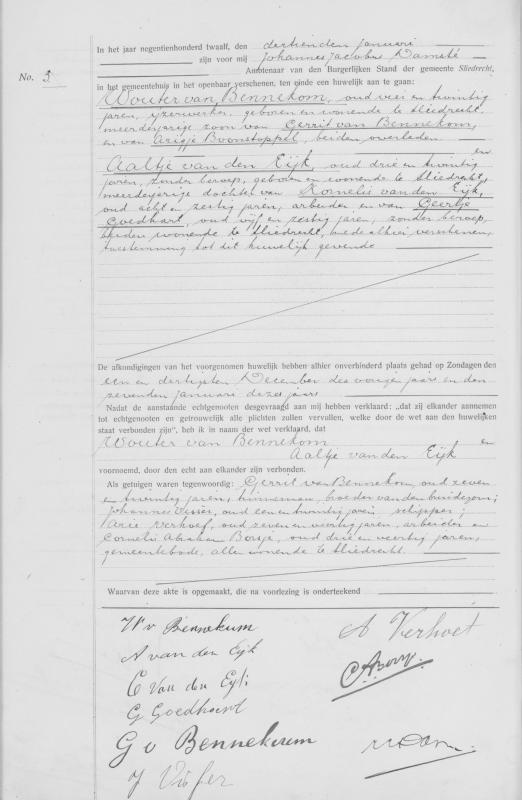 In het jaar negentienhonderd twaalf, den dertienden Januari
zijn voor mij Johannes Jacobus Damsté
No. 5
Ambtenaar van den Burgerlijken Stand der gemeente Sliedrecht,
in het gemeentehuis in het openbaar verschenen, ten einde een huwelijk aan te gaan:
Wouter van Bennekom, oud vier en twintig
jaren, ijzerwerker, geboren en wonende te Sliedrecht,
meerderjarige zoon van Gerrit van Bennekom,
en van Arigje Boonstoppel, beiden overleden
en
Aaltje van den Eijk, oud drie en twintig
jaren, zonder beroep, geboren en wonende te Sliedrecht,
meerderjarige dochter van Kornelis van den Eijk,
oud acht en zestig jaren, arbeider en van Geertje
Goedhart, oud vijf en zestig jaren, zonder beroep,
beiden wonende te Sliedrecht, mede alhier verschenen,
toestemming tot dit huwelijk gevende
De afkondigingen van het voorgenomen huwelijk hebben alhier onverhinderd plaats gehad op Zondagen den
een en dertigsten December des vorigen jaars en den
zevenden Januari dezes jaars
Nadat de aanstaande echtgenooten desgevraagd aan mij hebben verklaard: „dat zij elkander aannemen
tot echtgenooten en getrouwelijk alle plichten zullen vervullen, welke door de wet aan den huwelijken
staat verbonden zijn”, heb ik in naam der wet verklaard, dat
Wouter van Bennekom en
Aaltje van den Eijk
voornoemd, door den echt aan elkander zijn verbonden.
Als getuigen waren tegenwoordig: Gerrit van Bennekom, oud zeven
en twintig jaren, broeder van den bruidegom;
Johannes Visser, oud een en twintig jaren, schipper;
Arie Verhoef, oud zeven en veertig jaren, arbeider en
Cornelis Abraham Borsje, oud drie en veertig jaren,
gemeentebode, allen wonende te Sliedrecht.
Waarvan deze akte is opgemaakt, die na voorlezing is onderteekend
W v Bennekum
A Verhoef
A van den Eijk
C Van den Eijk
G Goedhart
G v Bennekum
J Visser